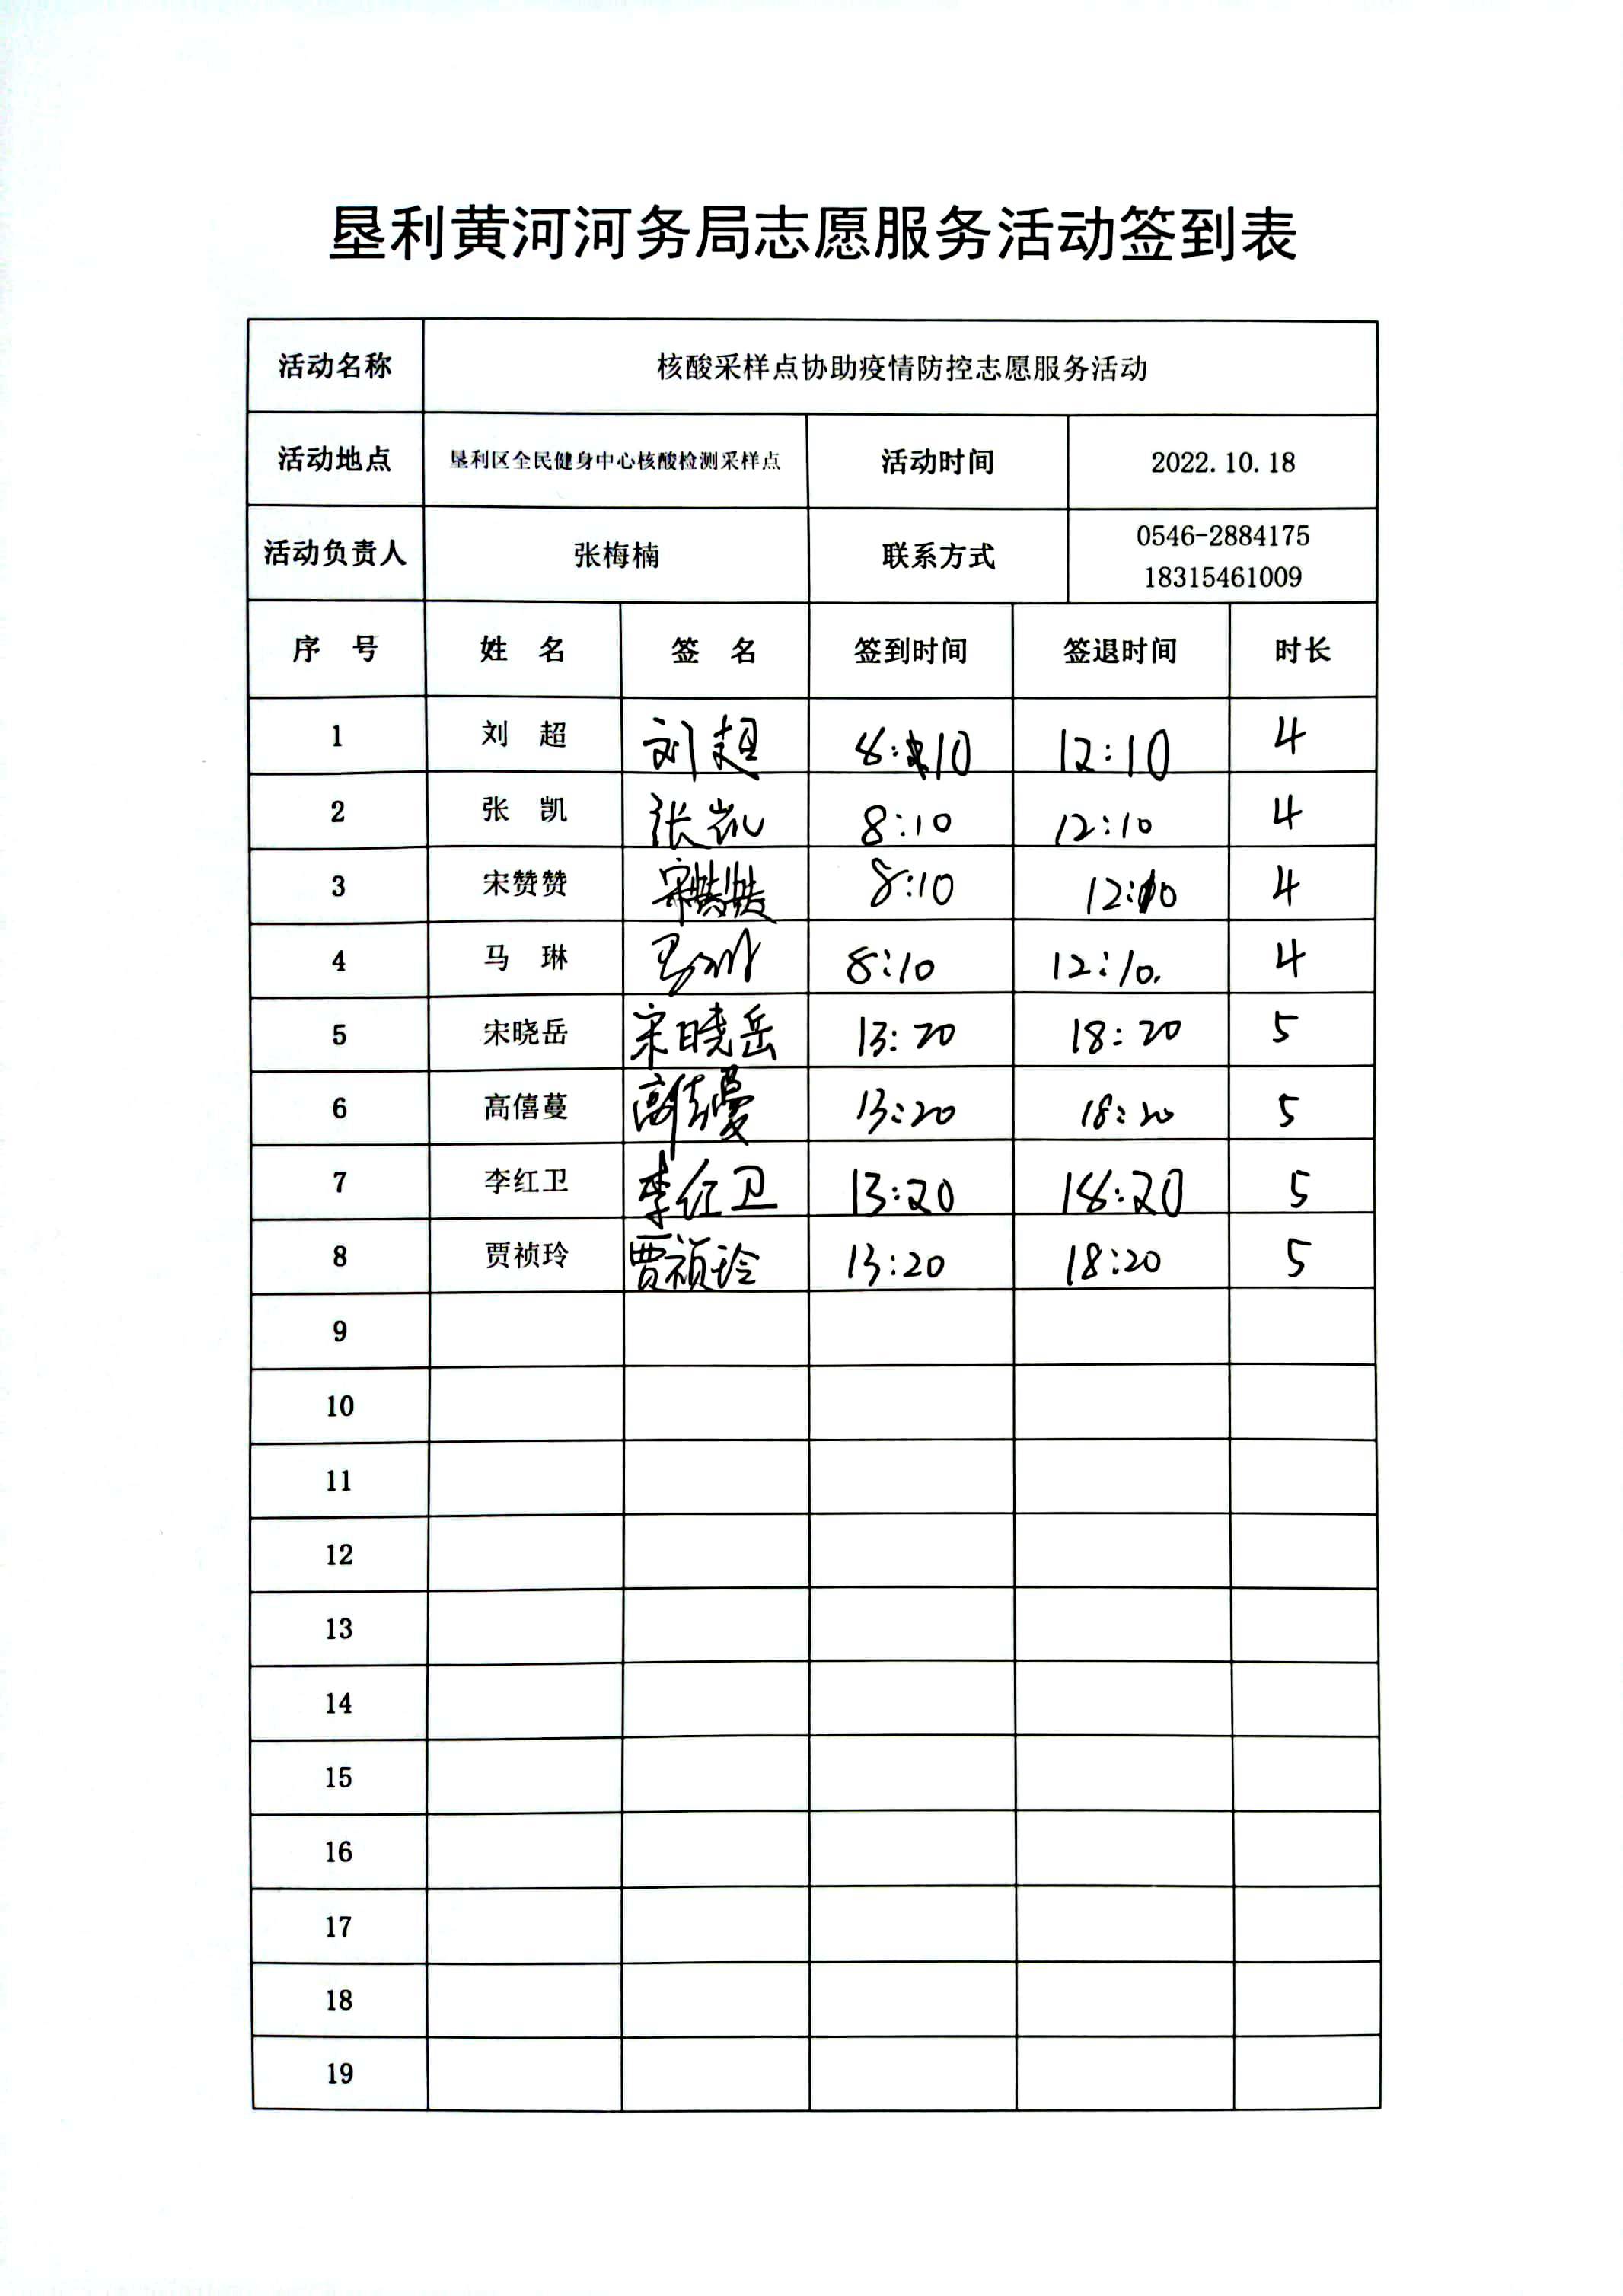 垦利黄河河务局志愿服务活动签到表
活动名称 核酸采样点协助疫情防控志愿服务活动
活动地点 垦利区全民健身中心核酸检测采样点 活动时间 2022.10.18
活动负责人 张梅楠 联系方式 0546-2884175
18315461009
序 号 姓 名 签 名 签到时间 签退时间 时长
1 刘 超 刘超 8:10 12:10 4
2 张 凯 张凯 8:10 12:10 4
3 宋赞赞 宋赞赞 8:10 12:10 4
4 马 琳 马琳 8:10 12:10. 4
5 宋晓岳 宋晓岳 13:20 18:20 5
6 高僖蔓 高僖蔓 13:20 18:20 5
7 李红卫 李红卫 13:20 18:20 5
8 贾祯玲 贾祯玲 13:20 18:20 5
9
10
11
12
13
14
15
16
17
18
19